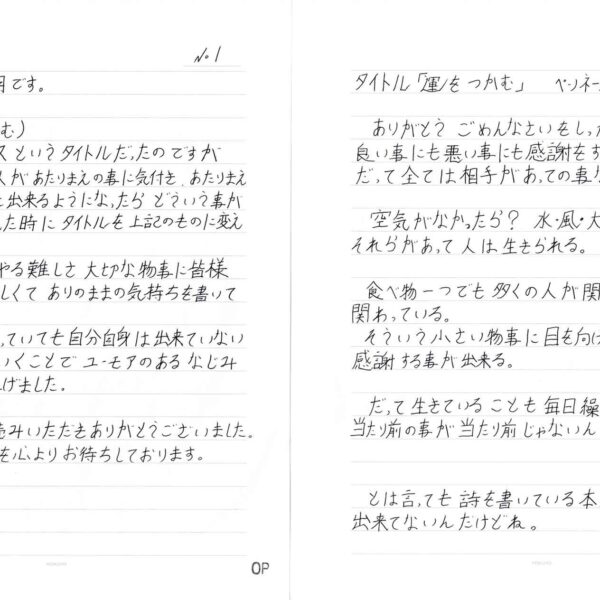 No.1
月です。
む)
スというタイトルだったのですが
スがあたりまえの事に気付き あたりまえ
出来るようになったら どういう事が
た時にタイトルを上記のものに変え
やる難しさ 大切な物事に皆様
しくて ありのままの気持ちを書いて
っていても自分自身は出来ていない
いくことで ユーモアのある なじみ
げました。
読みいただきありがとうございました。
を心よりお待ちしております。
OP
タイトル「運」をつかむ」 ペンネー
ありがとう ごめんなさいをしっ
良い事にも悪い事にも感謝をす
だって全ては相手があっての事
空気がなかったら? 水・風・大
それらがあって人は生きられる。
食べ物一つでも多くの人が関
関わっている。
そういう小さい物事に目を向け
感謝する事が出来る。
だって生きていることも毎日繰
当たり前の事が当たり前じゃないん
とは言っても 詩を書いている本
出来てないんだけどね。